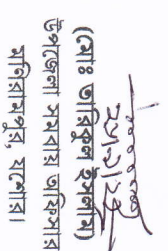 (মোঃ তারিকুল ইসলাম)
উপজেলা সমবায় অফিসার
মনিরামপুর, যশোর।